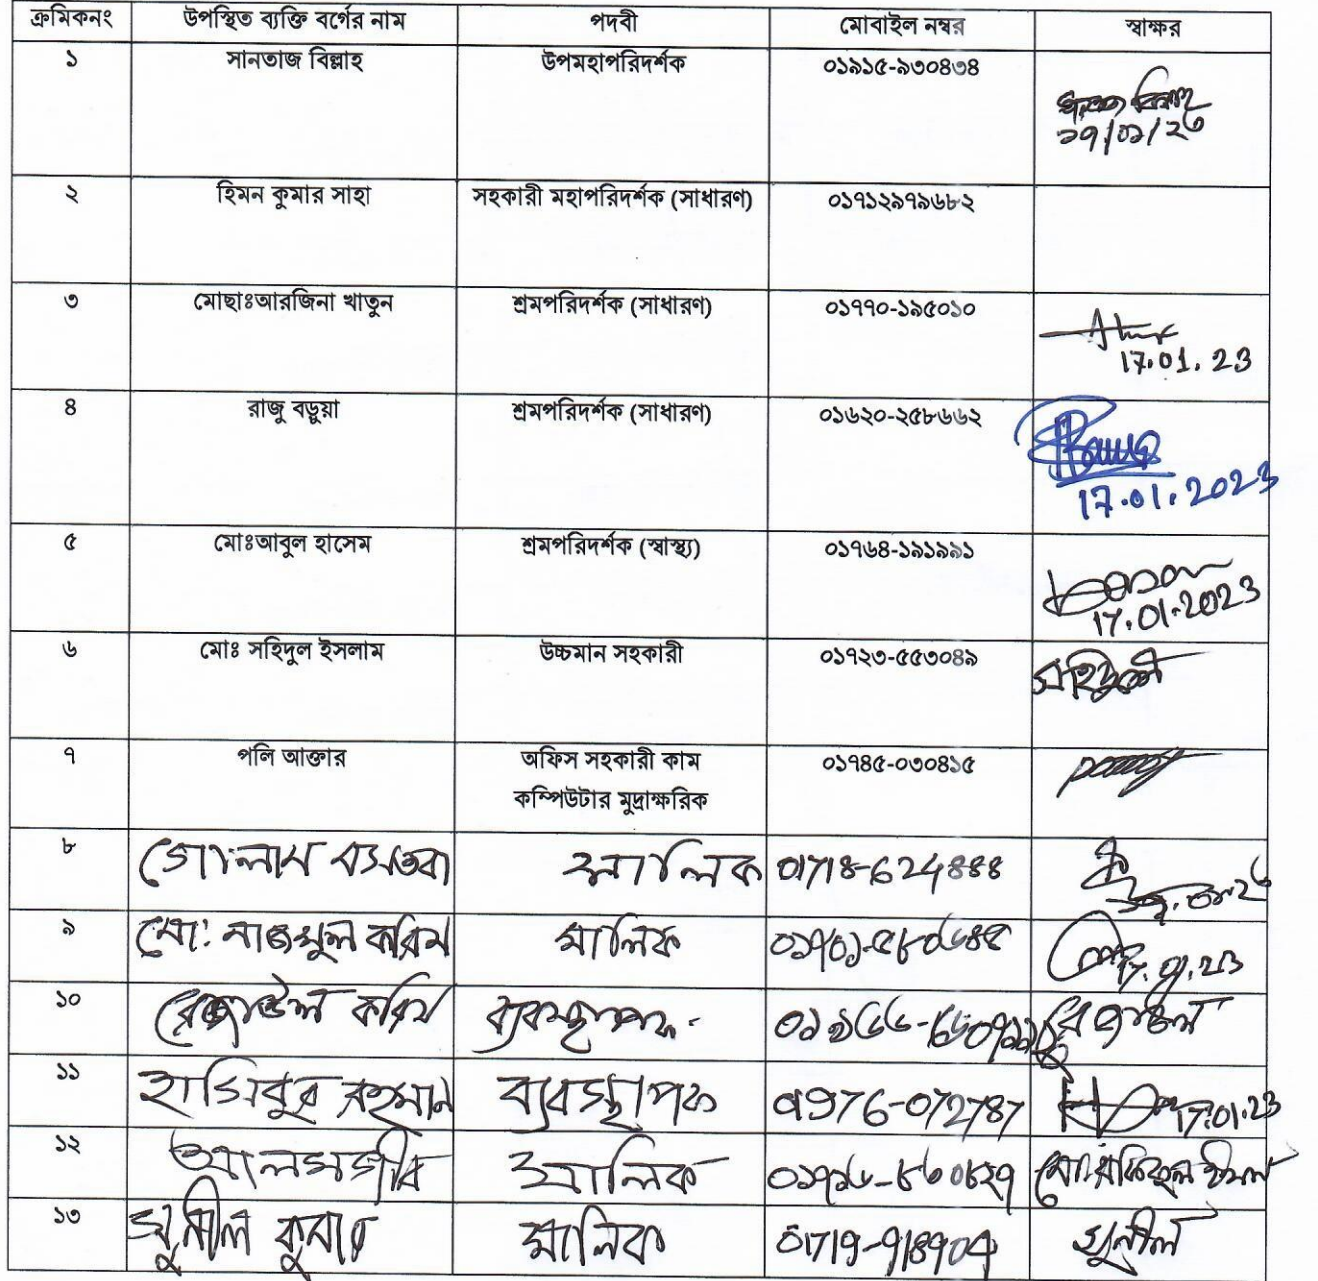 ক্রমিকনং উপস্থিত ব্যক্তি বর্গের নাম পদবী মোবাইল নম্বর স্বাক্ষর
১ সানতাজ বিল্লাহ উপমহাপরিদর্শক ০১৯১৫-৯৩০৪৩৪
২ হিমন কুমার সাহা সহকারী মহাপরিদর্শক (সাধারণ) ০১৭১২৯৭৯৬৮২
৩ মোছাঃআরজিনা খাতুন শ্রমপরিদর্শক (সাধারণ) ০১৭৭০-১৯৫০১০
17.01.23
৪ রাজু বড়ুয়া শ্রমপরিদর্শক (সাধারণ) ০১৬২০-২৫৮৬৬২
17.01.2023
৫ মোঃআবুল হাসেম শ্রমপরিদর্শক (স্বাস্থ্য) ০১৭৬৪-১৯১৯৯১
17.01.2023
৬ মোঃ সহিদুল ইসলাম উচ্চমান সহকারী ০১৭২৩-৫৫৩০৪৯
৭ পলি আক্তার অফিস সহকারী কাম ০১৭৪৫-০৩০৪১৫
কম্পিউটার মুদ্রাক্ষরিক
৮ গোলাম মালিক 01718-624888
৯ মো: নাজমুল করিম মালিক
১০ রেজাউল করিম ব্যবস্থাপক রেজাউল
১১ হাসিবুর রহমান ব্যবস্থাপক 01976-072787 17.01.23
১২ আলমগীর মালিক
১৩ সুনীল কুমার মালিক 01719-918904 সুনীল